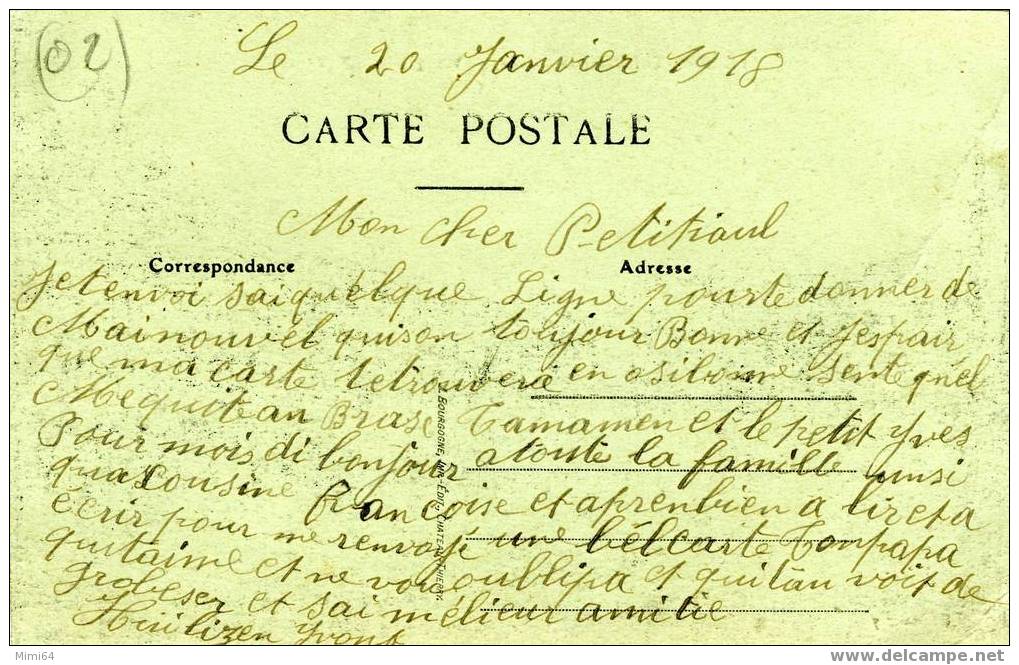 02
Le 20 Janvier 1918
CARTE POSTALE
Mon cher Petit
Correspondance
Adresse
Jetenvoi sai quélque Ligne pourte donner de
Mainouvél quison toujour Bonne et Jespair
que ma carte tetrouvere en osibonne sentequél
Mequitean Brase Tamamen et le petit Yves
Pour mois di bonjour atoute la famille unsi
qua Cousine Francoise et aprenbien a liréta
écrir pour me renvoyé une bélcarte Tonpapa
quitaime et ne vououblipa et quitan voit de
grobeser et sai mélieur amitie
Yvont
J. BOURGOGNE, IMP.-ÉDIT., CHATEAU-THIERRY.
Mimi64
www.delcampe.net